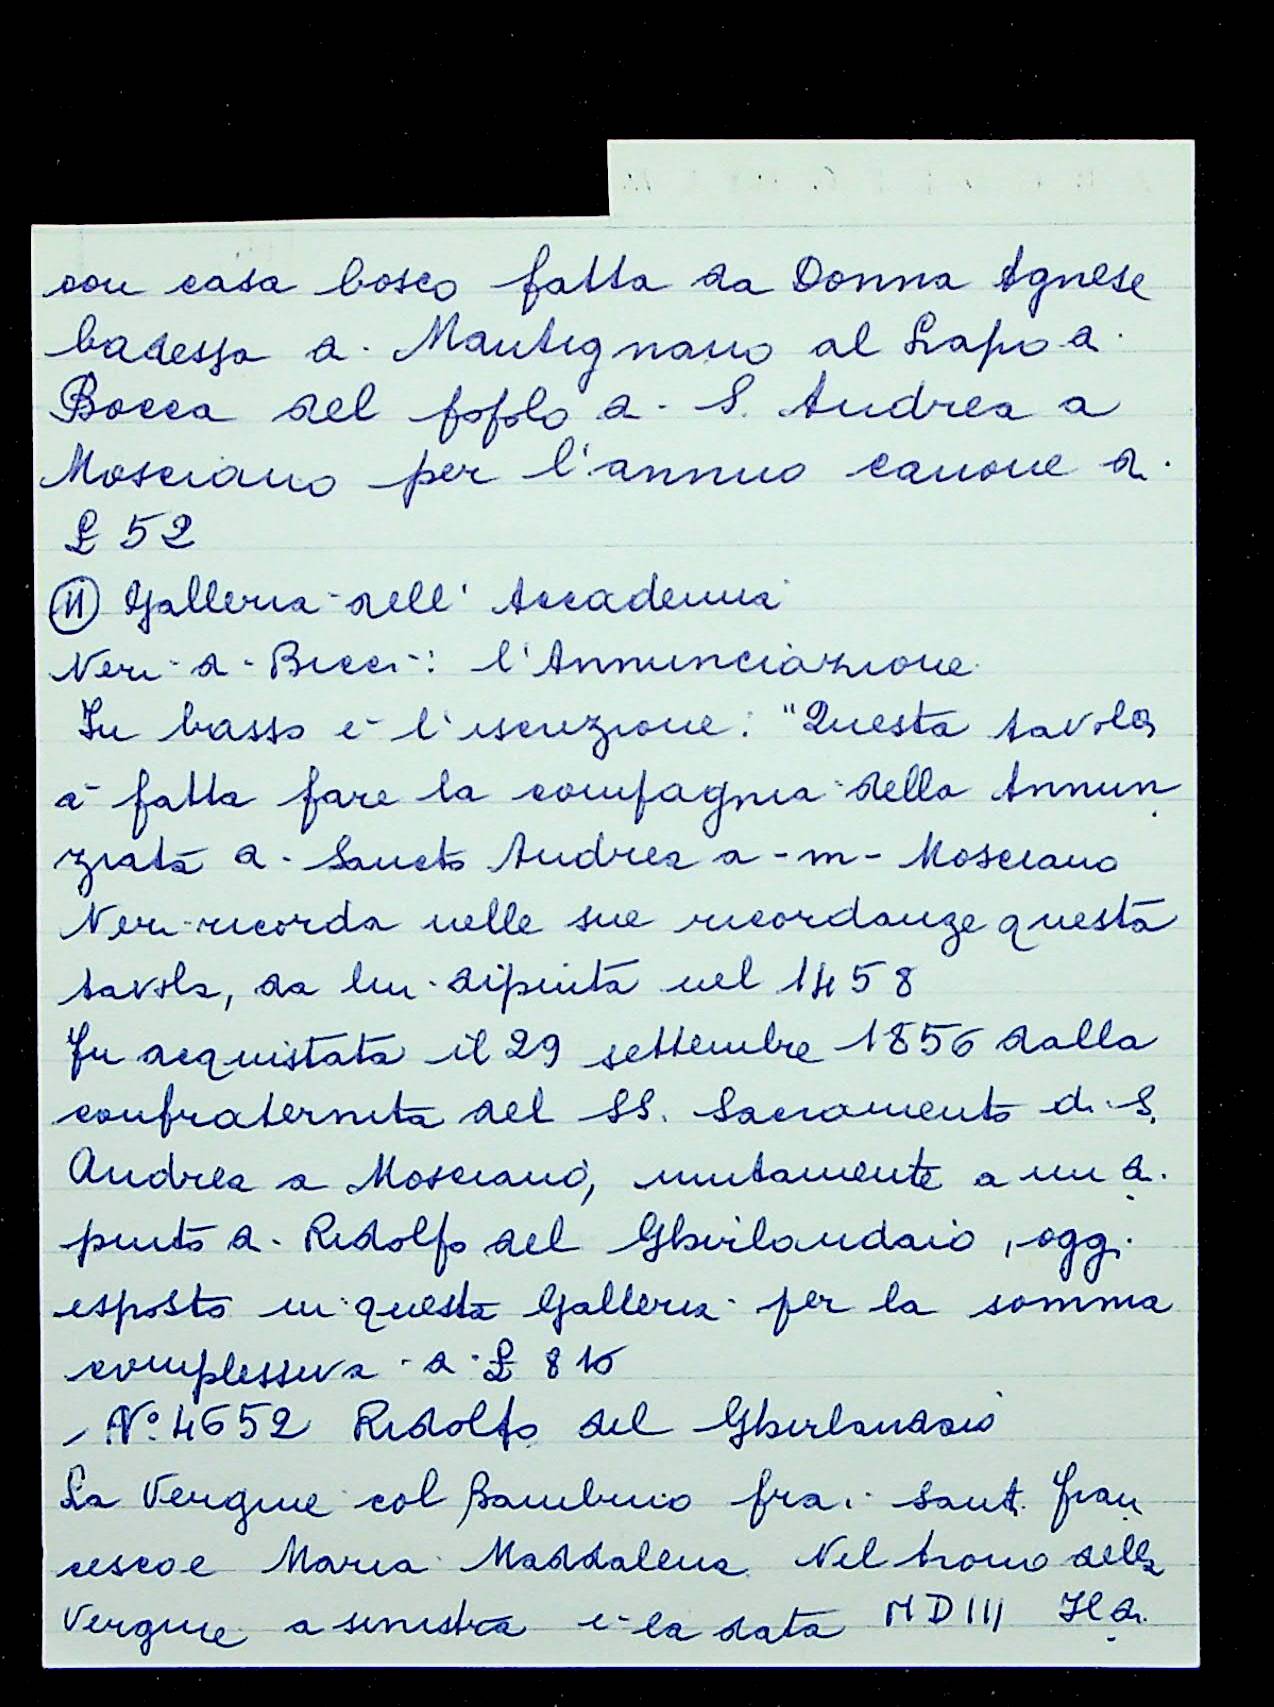 con casa bosco fatta da Donna Agnese
badessa di Mantignano al Lapo di
Bocca del popolo di S. Andrea a
Mosciano per l'annuo canone di
£ 52
11 Galleria dell' Accademia
Neri di Bicci: l'Annunciazione
In basso è l'iscrizione: "Questa tavola
à fatta fare la compagnia della Annun
ziata di Sancto Andrea a - m - Mosciano
Neri ricorda nelle sue ricordanze questa
tavola, da lui dipinta nel 1458
Fu acquistata il 29 settembre 1856 dalla
confraternita del SS. Sacramento di S.
Andrea a Mosciano, unitamente a un di
pinto di Ridolfo del Ghirlandaio, oggi
esposto in questa Galleria per la somma
complessiva di £ 810
- N° 4652 Ridolfo del Ghirlandaio
La Vergine col Bambino fra i santi Fran
cesco e Maria Maddalena Nel trono della
Vergine a sinistra è la data MDIII Il di